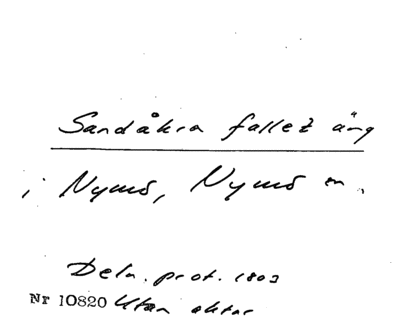 Sandåkra fallet äng
i Nymö, Nymö sn.
Deln. prot. 1803
Nr 10820 Utan aktar